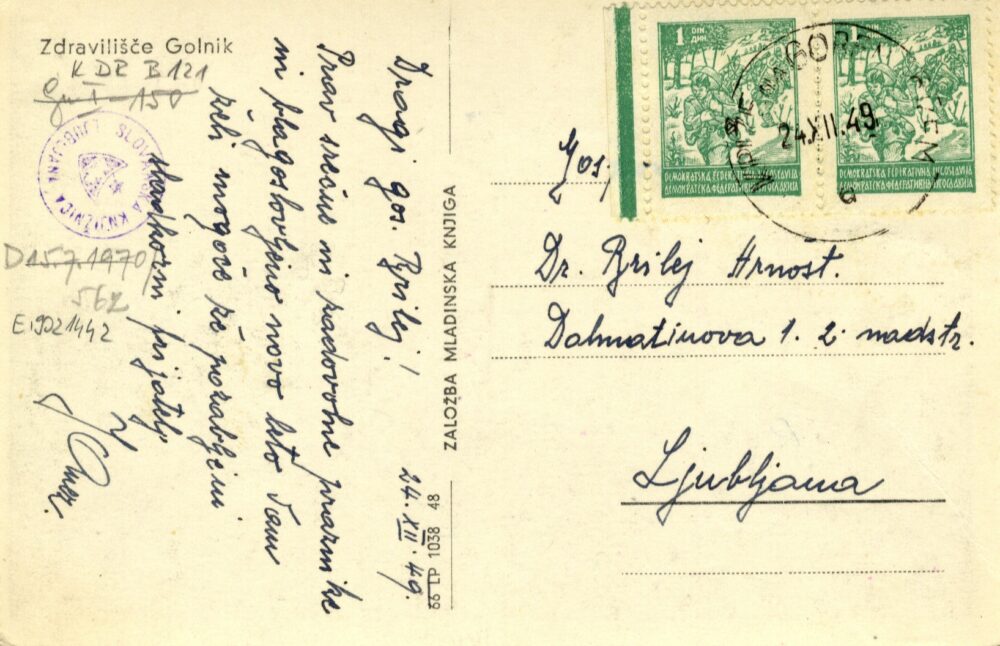 Zdravilišče Golnik
K DR B 121
Gu I 150
SLOVANSKA KNJIŽNICA LJUBLJANA
D 15.7.1970
562
E:9021442
Dragi gos. Brilej!
24. XII. 49.
Prav srečne in radovoljne praznike
in blagoslovljeno novo leto Vam
želi mogoče že pozabljeni
prijatelj
ZALOŽBA MLADINSKA KNJIGA
66 LP 1038 48
1 DIN
ДИН
DEMOKRATSKA FEDERATIVNA JUGOSLAVIJA
ДЕМОКРАТСКА ФЕДЕРАТИВНА ЈУГОСЛАВИЈА
1
DEMOKRATSKA FEDERATIVNA JUGOSLAVIJA
ДЕМОКРАТСКА ФЕДЕРАТИВНА ЈУГОСЛАВИЈА
24.XII.49
a
Gosp.
Dr. Brilej Arnošt.
Dalmatinova 1. 2. nadstr.
Ljubljana